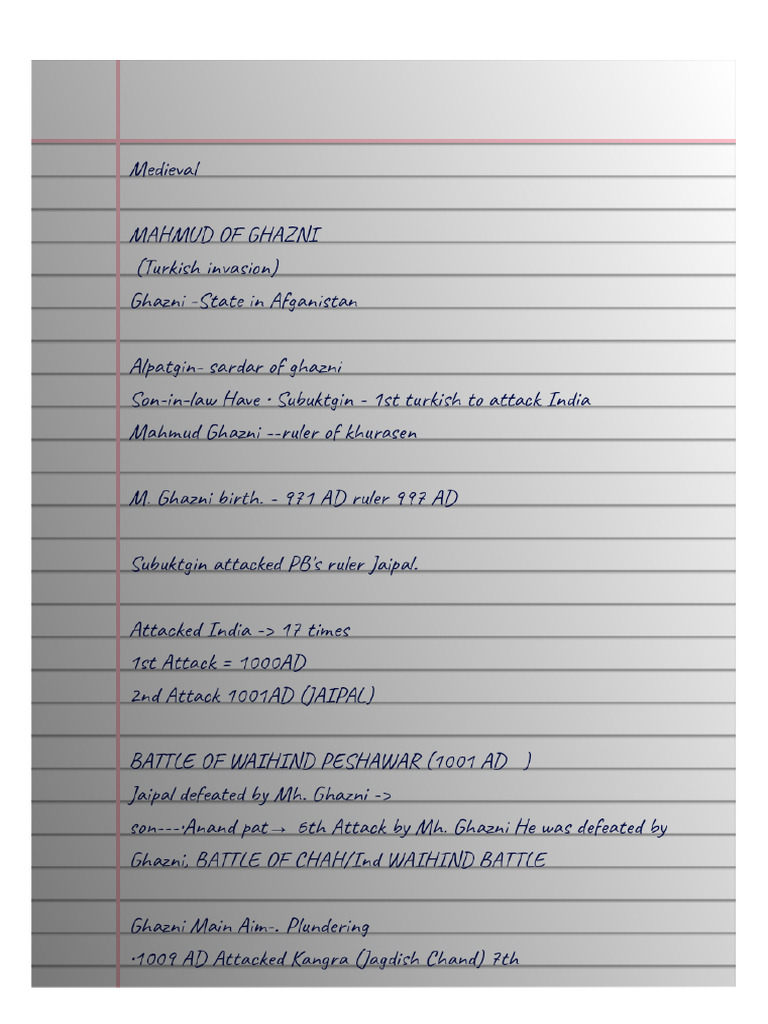 Medieval
MAHMUD OF GHAZNI
(Turkish invasion)
Ghazni -State in Afganistan
Alpatgin- sardar of ghazni
Son-in-law Have • Subuktgin - 1st turkish to attack India
Mahmud Ghazni --ruler of khurasen
M. Ghazni birth. - 971 AD ruler 997 AD
Subuktgin attacked PB's ruler Jaipal.
Attacked India -> 17 times
1st Attack = 1000AD
2nd Attack 1001AD (JAIPAL)
BATTLE OF WAIHIND PESHAWAR (1001 AD )
Jaipal defeated by Mh. Ghazni ->
son---·Anand pat→ 6th Attack by Mh. Ghazni He was defeated by
Ghazni, BATTLE OF CHAH/Ind WAIHIND BATTLE
Ghazni Main Aim-. Plundering
·1009 AD Attacked Kangra (Jagdish Chand) 7th